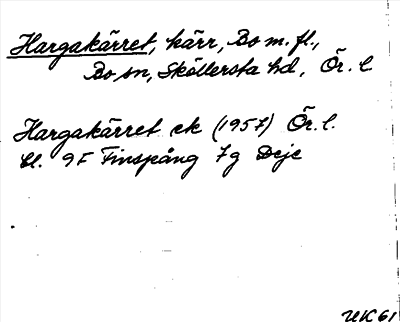 Hargakärret, kärr, Bo m. fl.,
Bo sn, Sköllersta hd, Ör. l.
Hargakärret ek (1957) Ör. l.
bl. 9F Finspång 7g Deje
UK61